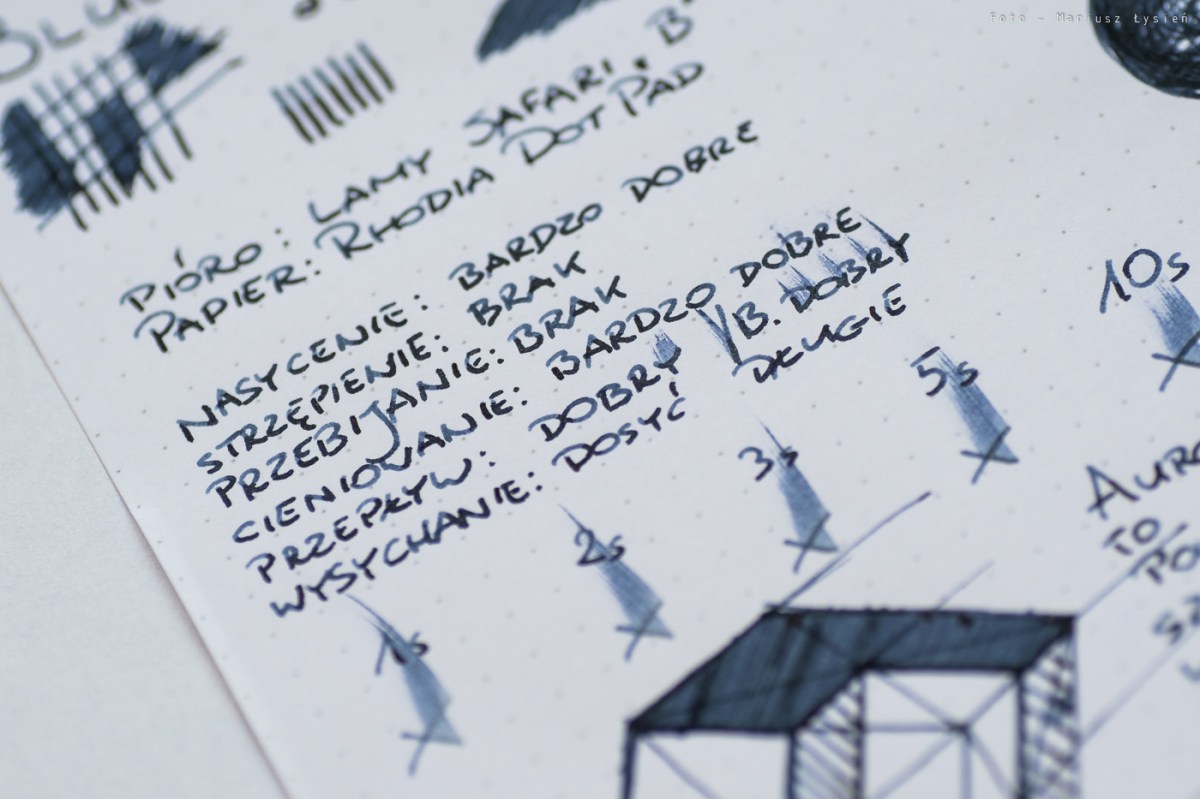 Foto - Mariusz Łysień
BLU
PIÓRO: LAMY SAFARI, B
PAPIER: RHODIA DOT PAD
NASYCENIE: BARDZO DOBRE
STRZĘPIENIE: BRAK
PRZEBIJANIE: BRAK
CIENIOWANIE: BARDZO DOBRE
PRZEPŁYW: DOBRY / B. DOBRY
WYSYCHANIE: DOSYĆ DŁUGIE
1s 2s 3s 5s 10s
AURO
TO
PO